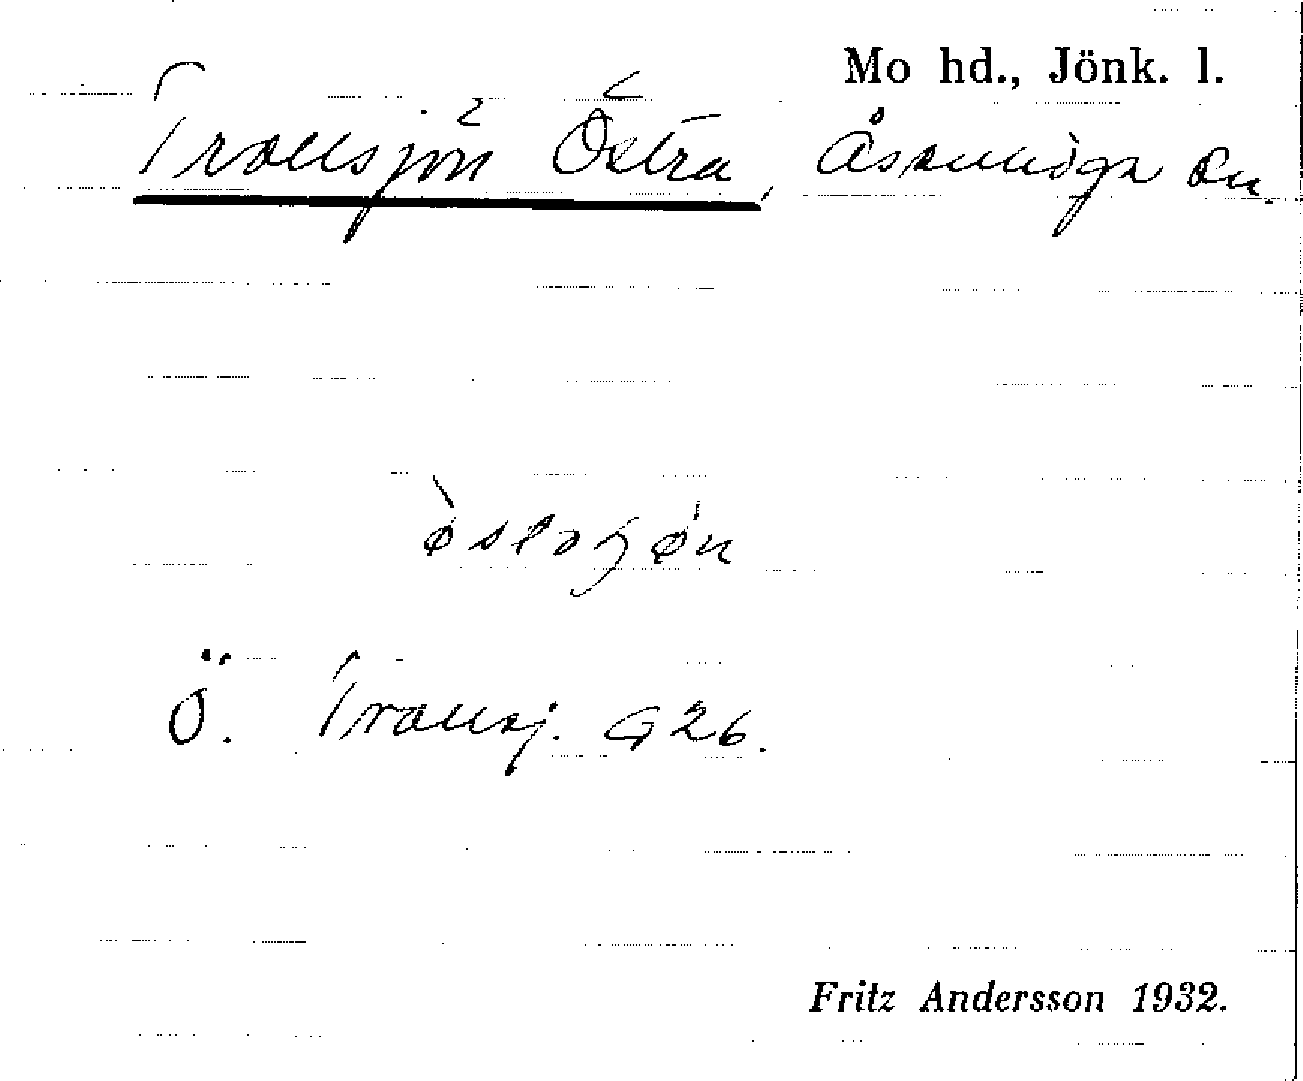 Mo hd., Jönk. l.
Trollsjön Östra, Åsenhöga sn.
Ö. Trollsj. G26.
Fritz Andersson 1932.